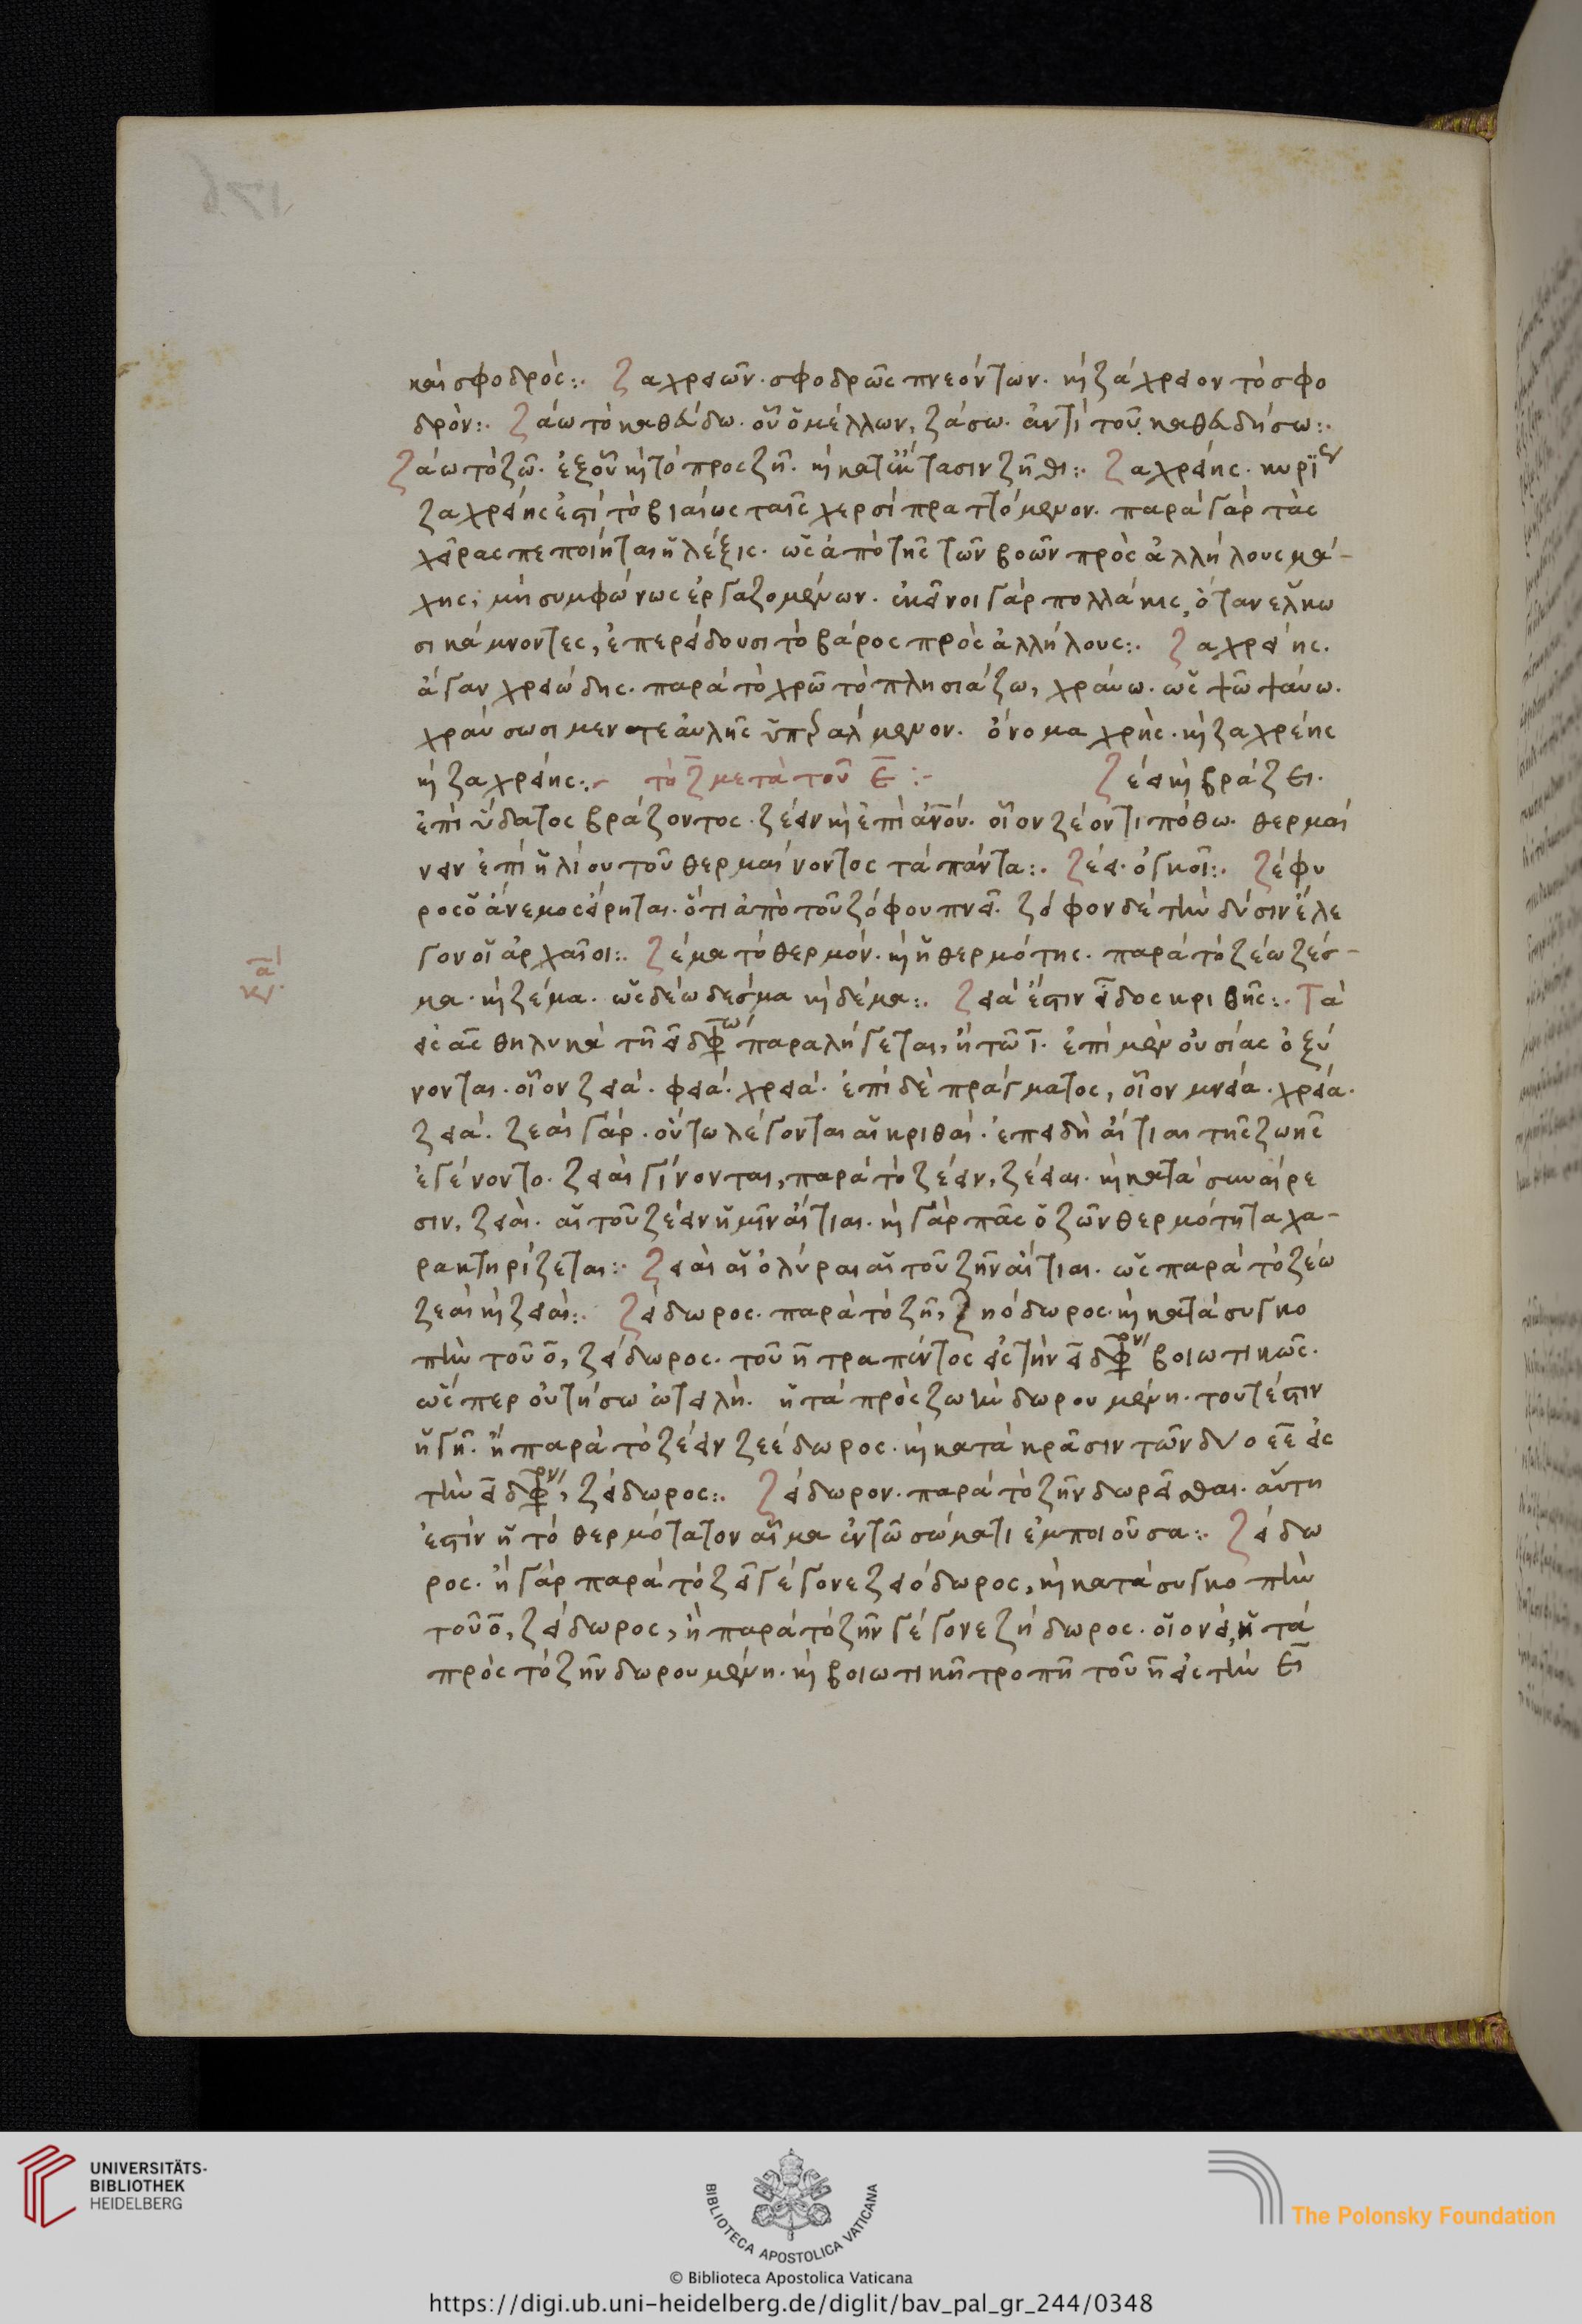 καὶ σφοδρός:. Ζαχρειῶν. σφοδρῶς πνεόντων. καὶ ζάχρειον τὸ σφο
δρόν:. Ζάω τὸ καθεύδω. οὗ ὁ μέλλων, ζάσω. ἀντὶ τοῦ καθευδήσω:.
Ζάω τὸ ζῶ. ἐξ οὗ καὶ τὸ προσζῆ. καὶ κατ' ἔκτασιν ζῆθι:. Ζαχρειής. κυρί
ζαχρειὴς ἐστὶ τὸ βιαίως ταῖς χερσὶ πραττόμενον. παρὰ γὰρ τὰς
χεῖρας πεποίηται ἡ λέξις. ὡς ἀπὸ τῆς τῶν βοῶν πρὸς ἀλλήλους μά-
χης, μὴ συμφώνως ἐργαζομένων. ἐκεῖνοι γὰρ πολλάκις, ὅταν ἕλκω
σι κάμνοντες, ἐπερείδουσι τὸ βάρος πρὸς ἀλλήλους:. Ζαχρειής.
ἄγαν χρειώδης. παρὰ τὸ χρῶ τὸ πλησιάζω, χραύω. ὡς ψῶ ψαύω.
χραύσωσι μεν τε αὐλῆς ὑπεράλμενον. ὄνομα χρὴς. καὶ ζαχρέης
καὶ ζαχρειής:.- τὸ ζ μετὰ τοῦ ε :- Ζέει καὶ βράζει.
ἐπὶ ὕδατος βράζοντος. ζέειν καὶ ἐπὶ ἀνον. οἷον ζέοντι πόθω. θερμαί
νειν ἐπὶ ἡλίου τοῦ θερμαίνοντος τὰ πάντα:. Ζέει. ὀγκοῖ:. Ζέφυ
ρος ὁ ἄνεμος εἴρηται. ὅτι ἀπὸ τοῦ ζόφου πνεῖ. ζόφον δὲ τὴν δύσιν ἔλε
γον οἱ ἀρχαῖοι:. Ζέμα τὸ θερμόν. καὶ ἡ θερμότης. παρὰ τὸ ζέω ζέσ-
μα. καὶ ζέμα. ὡς δέω δεσμα καὶ δέμα:. Ζειά ἐστιν εἶδος κριθῆς:. Τὰ
εἰς ας θηλυκὰ τῆ ει διφθόγγω παραλήγεται, ἢ τῶ ι. ἐπὶ μὲν οὐσίας ὀξύ
νονται. οἷον ζειά. φειά. χρειά. ἐπὶ δὲ πράγματος, οἷον μνεία. χρεία.
ζειά. ζεαὶ γάρ. οὕτω λέγονται αἱ κριθαί. ἐπειδὴ αἴτιαι τῆς ζωῆς
ἐγένοντο. ζειαὶ γίνονται, παρὰ τὸ ζέειν, ζέειαι. καὶ κατὰ συναίρε
σιν, ζειαί. αἱ τοῦ ζέειν ἡμῖν αἴτιαι. καὶ γὰρ πᾶς ὁ ζῶν θερμότητα χα-
ρακτηρίζεται:. Ζειαὶ αἱ ὀλύραι αἱ τοῦ ζῆν αἴτιαι. ὡς παρὰ τὸ ζέω
ζεαὶ καὶ ζειαί:. Ζείδωρος. παρὰ τὸ ζῆ, ζηόδωρος. καὶ κατὰ συγκο
πὴν τοῦ ο, ζείδωρος. τοῦ η τραπέντος εἰς τὴν ει δίφθογγον βοιωτικῶς.
ὥσπερ οὐτήσω ὠτειλή. ἡ τὰ πρὸς ζωὴν δωρουμένη. τουτέστιν
ἡ γῆ. ἢ παρὰ τὸ ζέειν ζεέδωρος. καὶ κατὰ κρᾶσιν τῶν δυο εε εἰς
τὴν ει δίφθογγον, ζείδωρος:. Ζείδωρον. παρὰ τὸ ζῆν δωρεῖσθαι. αὕτη
ἐστὶν ἡ τὸ θερμότατον αἷμα ἐν τῶ σώματι ἐμποιοῦσα:. Ζείδω
ρος. ἢ γὰρ παρὰ τὸ ζεῖ γέγονε ζειόδωρος, καὶ κατὰ συγκοπὴν
τοῦ ο, ζείδωρος, ἢ παρὰ τὸ ζῆν γέγονε ζήδωρος. οἱονεὶ, ἡ τὰ
πρὸς τὸ ζῆν δωρουμένη. καὶ βοιωτικῆ τροπῆ τοῦ η εἰς τὴν ει
UNIVERSITÄTS-
BIBLIOTHEK
HEIDELBERG
BIBLIOTECA APOSTOLICA VATICANA
The Polonsky Foundation
© Biblioteca Apostolica Vaticana
https://digi.ub.uni-heidelberg.de/diglit/bav_pal_gr_244/0348